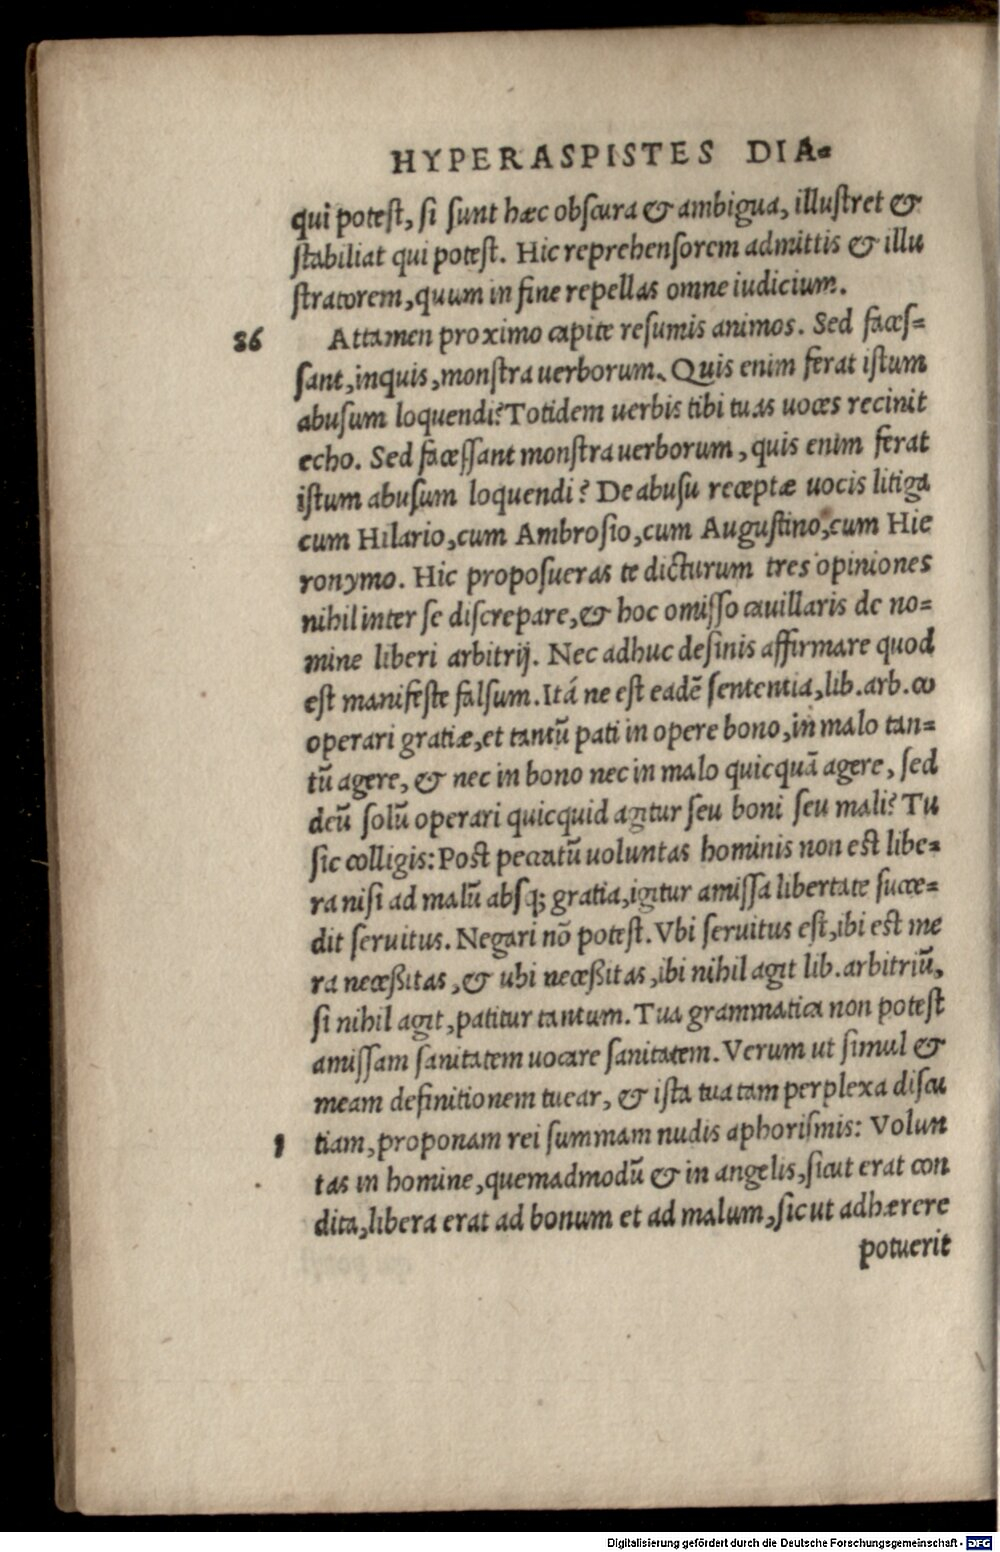 HYPERASPISTES DIA-
qui potest, si sunt hæc obscura & ambigua, illustret &
stabiliat qui potest. Hic reprehensorem admittis & illu
stratorem, quum in fine repellas omne iudicium.
86 Attamen proximo capite resumis animos. Sed faces-
sant, inquis, monstra uerborum. Quis enim ferat istum
abusum loquendi? Totidem uerbis tibi tuas uoces recinit
echo. Sed facessant monstra uerborum, quis enim ferat
istum abusum loquendi? De abusu receptæ uocis litiga
cum Hilario, cum Ambrosio, cum Augustino, cum Hie
ronymo. Hic proposueras te dicturum tres opiniones
nihil inter se discrepare, & hoc omisso cauillaris de no-
mine liberi arbitrij. Nec adhuc desinis affirmare quod
est manifeste falsum. Itá ne est eadē sententia, lib. arb. co
operari gratiæ, et tantū pati in opere bono, in malo tan-
tū agere, & nec in bono nec in malo quicquā agere, sed
deū solū operari quicquid agitur seu boni seu mali? Tu
sic colligis: Post peccatū uoluntas hominis non est libe-
ra nisi ad malū absq; gratia, igitur amissa libertate succe-
dit seruitus. Negari nō potest. Vbi seruitus est, ibi est me
ra neceßitas, & ubi neceßitas, ibi nihil agit lib. arbitriū,
si nihil agit, patitur tantum. Tua grammatica non potest
amissam sanitatem uocare sanitatem. Verum ut simul &
meam definitionem tuear, & ista tua tam perplexa discu
1 tiam, proponam rei summam nudis aphorismis: Volun
tas in homine, quemadmodū & in angelis, sicut erat con
dita, libera erat ad bonum et ad malum, sic ut adhærere
potuerit
Digitalisierung gefördert durch die Deutsche Forschungsgemeinschaft - DFG